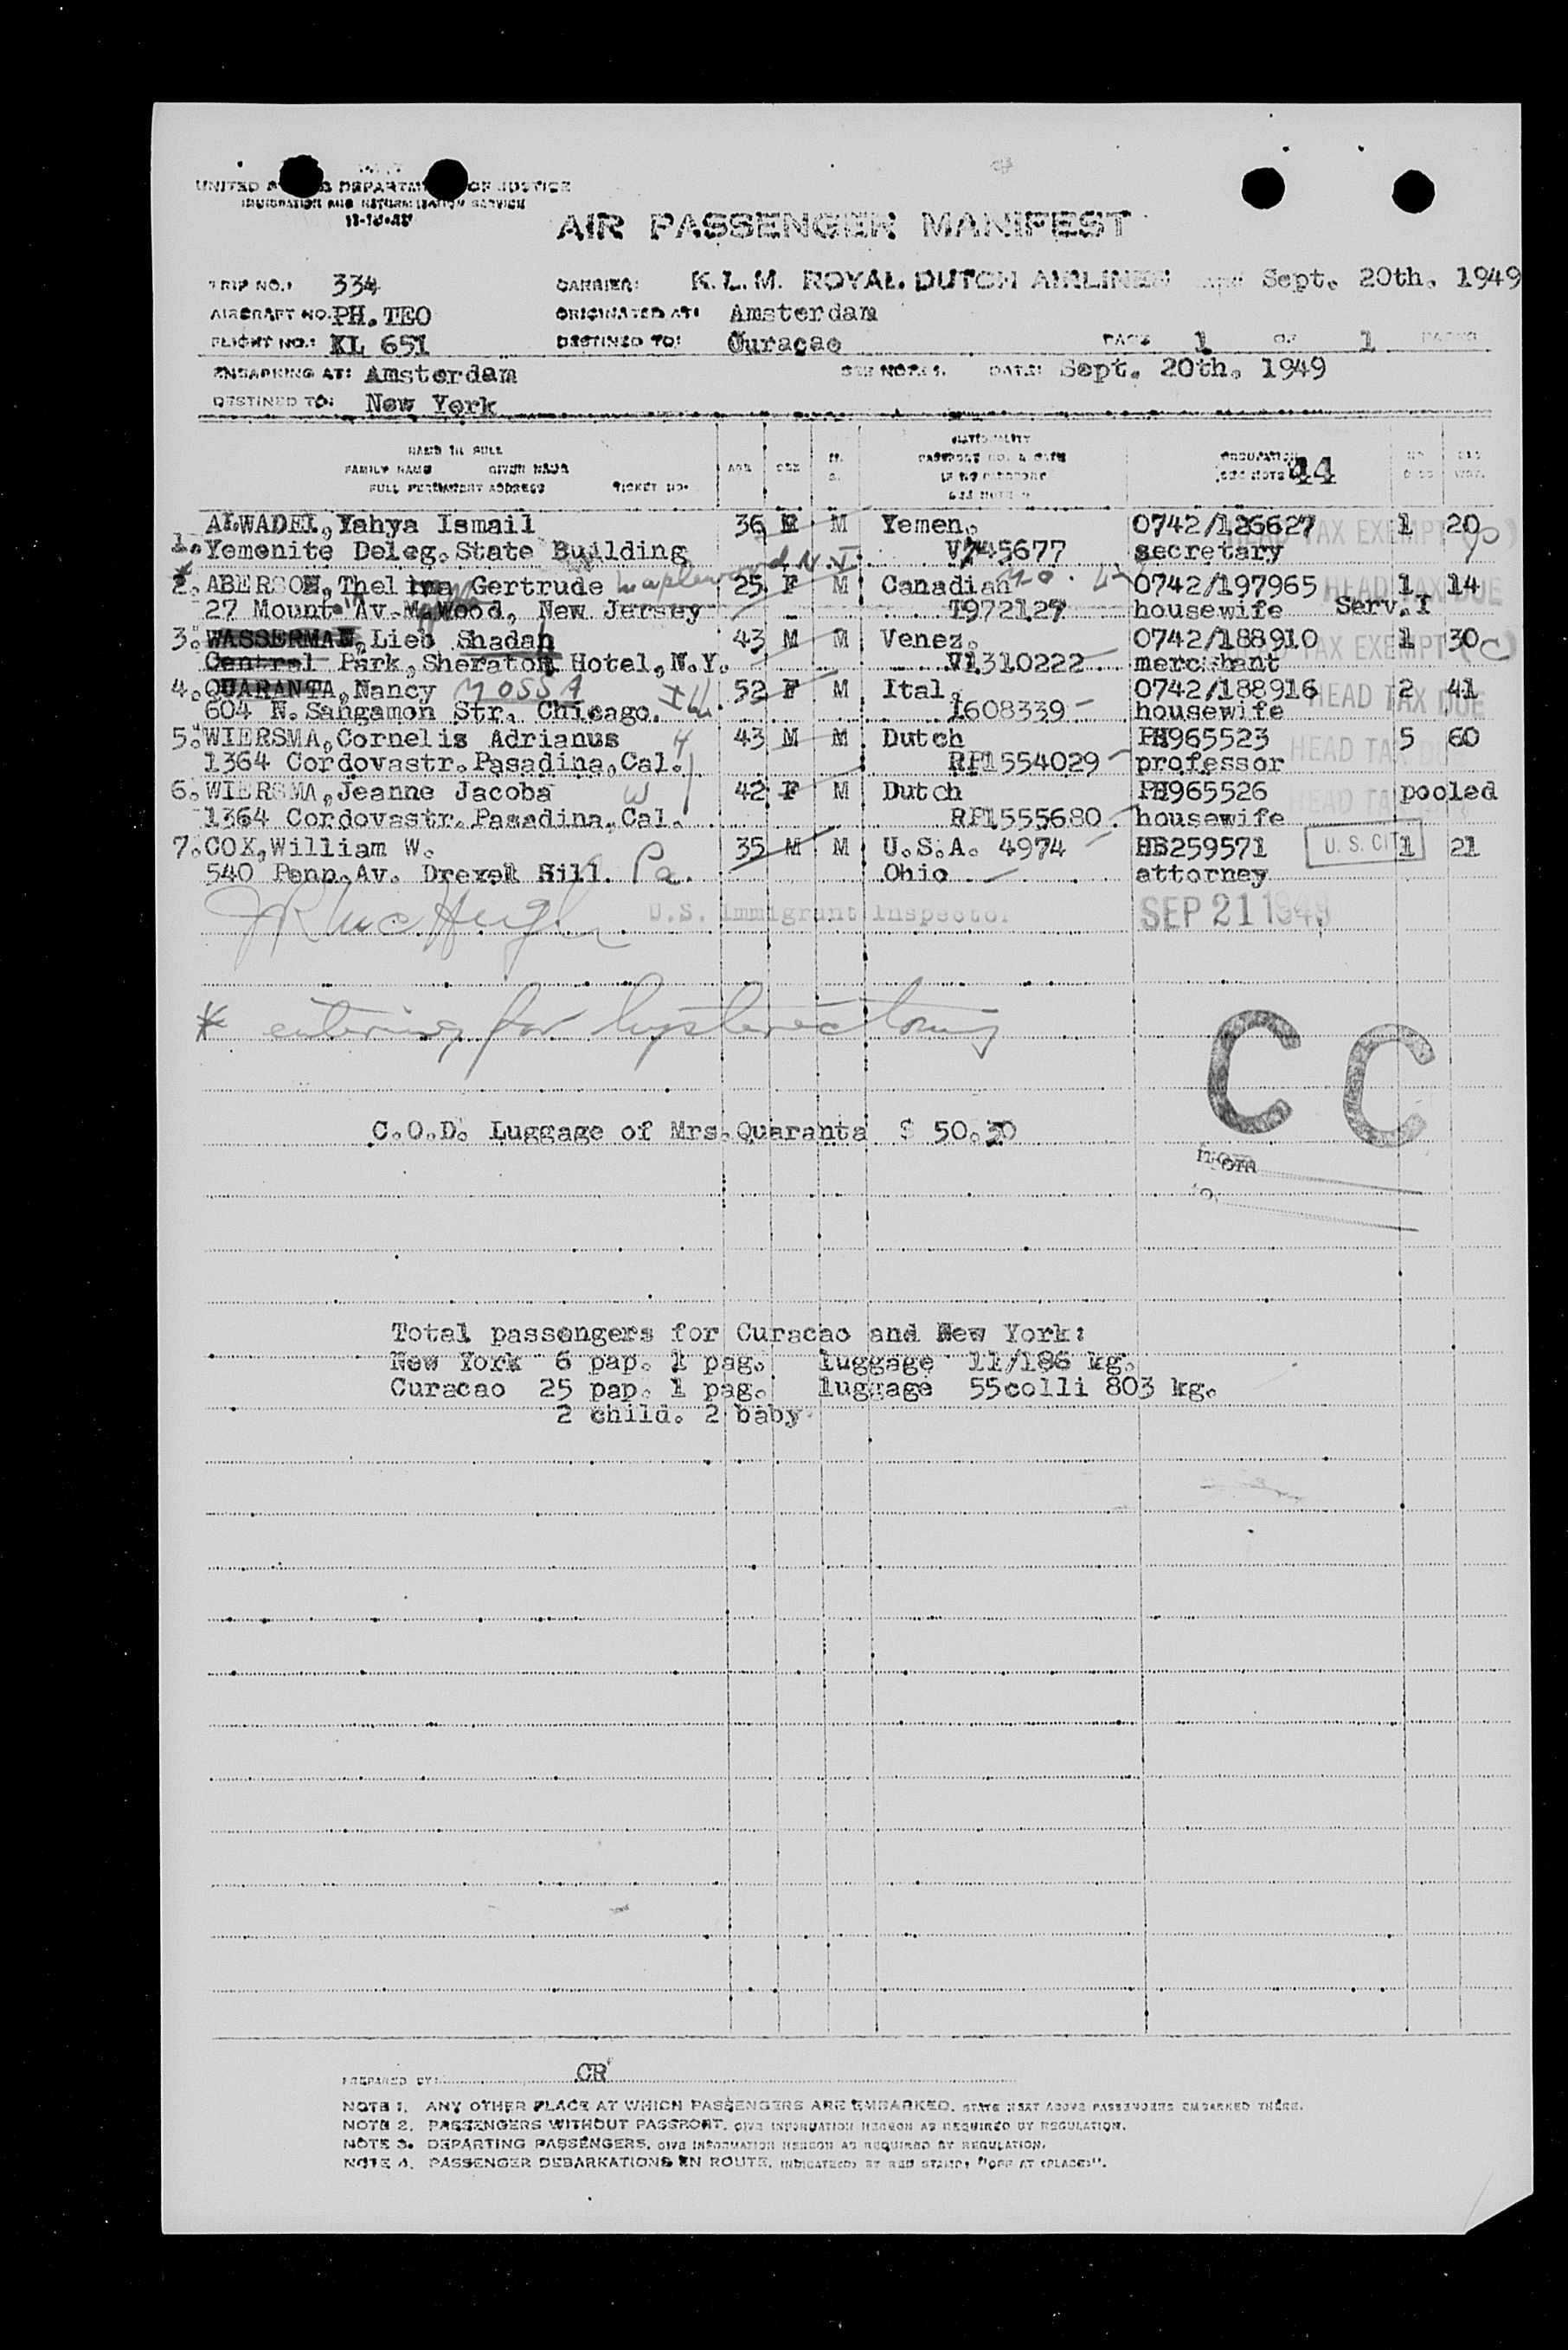 UNITED DEPARTM OF JUSTICE
IMMIGRATION AND NATURALIZATION SERVICE
AIR PASSENGER MANIFEST
TRIP NO.: 334 CARRIER: K.L.M. ROYAL DUTCH AIRLINES Sept. 20th. 1949
AIRCRAFT NO. PH.TEO ORIGINATED AT: Amsterdam
FLIGHT NO.: KL 651 DESTINED TO: Curaçao PAGE 1 OF 1 PAGES
EMBARKING AT: Amsterdam SEE NOTE 1. DATE: Sept. 20th. 1949
DESTINED TO: New York
NAME IN FULL NATIONALITY
FAMILY NAME GIVEN NAME AGE SEX PASSPORT NO. OCCUPATION
FULL PERMANENT ADDRESS TICKET NO. IF NO PASSPORT SEE NOTE 44
ALWADEI, Yahya Ismail 36 M M Yemen. 0742/126627 HEAD TAX EXEMPT 1 20
1. Yemenite Deleg. State Building V745677 secretary
* Maplewood N.J.
2. ABERSON, Thelma Gertrude 25 F M Canadian 0742/197965 HEAD TAX DUE 1 14
27 Mount Av. M. Wood, New Jersey T972127 housewife Serv. I
3. WASSERMAN, Lieb Shadah 43 M M Venez. 0742/188910 TAX EXEMPT 1 30
Central Park, Sheraton Hotel, N.Y. V1310222 merchant
4. QUARANTA, Nancy MOSSA 52 F M Ital. 0742/188916 HEAD TAX DUE 2 41
604 N. Sangamon Str. Chicago. Ill. I608339 housewife
5. WIERSMA, Cornelis Adrianus H 43 M M Dutch PH965523 HEAD TAX DUE 5 60
1364 Cordovastr. Pasadina, Cal. RP1554029 professor
6. WIERSMA, Jeanne Jacoba W 42 F M Dutch PH965526 HEAD TAX pooled
1364 Cordovastr. Pasadina, Cal. RP1555680 housewife
7. COX, William W. 35 M M U.S.A. 4974 HB259571 U. S. CIT 1 21
540 Penn. Av. Drexel Hill. Pa. Ohio attorney
U.S. Immigrant Inspector SEP 21 1949
* entering for hysterectomy
C C
C.O.D. Luggage of Mrs. Quaranta $ 50.30
from
to
Total passengers for Curacao and New York:
New York 6 pap. 1 pag. luggage 11/186 kg.
Curacao 25 pap. 1 pag. luggage 55colli 803 kg.
2 child. 2 baby
PREPARED BY: CR
NOTE 1. ANY OTHER PLACE AT WHICH PASSENGERS ARE EMBARKED, STATE NEXT ABOVE PASSENGERS EMBARKED THERE.
NOTE 2. PASSENGERS WITHOUT PASSPORT, GIVE INFORMATION HEREON AS REQUIRED BY REGULATION.
NOTE 3. DEPARTING PASSENGERS, GIVE INFORMATION HEREON AS REQUIRED BY REGULATION.
NOTE 4. PASSENGER DEBARKATIONS EN ROUTE, INDICATED BY RED STAMP, "OFF AT (PLACE)".